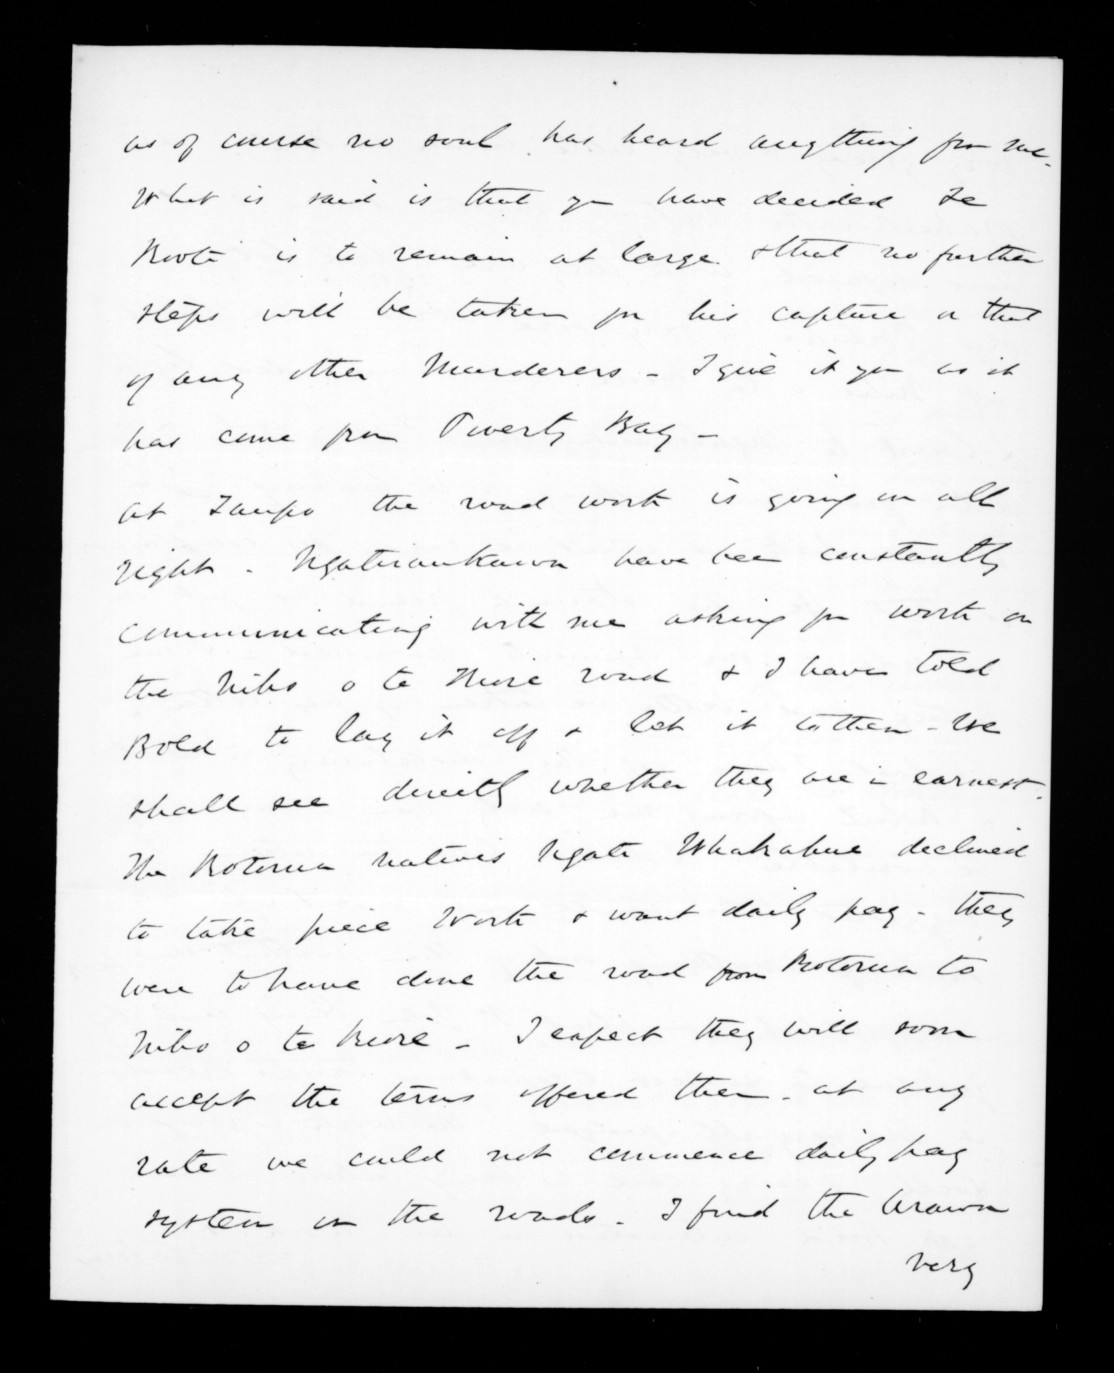 as of course no soul has heard anything from me.
What is said is that you have decided Te
Kooti is to remain at large & that no further
steps will be taken for his capture or that
of any other Murderers - I give it you as it
has come from Poverty Bay -
At Taupo the road work is going on all
right - Ngatiraukawa have been constantly
communicating with me asking for work on
the Niho o te Kiore road & I have told
Bold to lay it off & let it to them - We
shall see directly whether they are in earnest.
The Rotorua natives Ngati Whakahue declined
to take piece Work & want daily pay - they
were to have done the road from Rotorua to
Niho o te Kiore - I expect they will soon
accept the terms offered them - at any
rate we could not commence daily pay
system on the roads - I find the Arawa
very